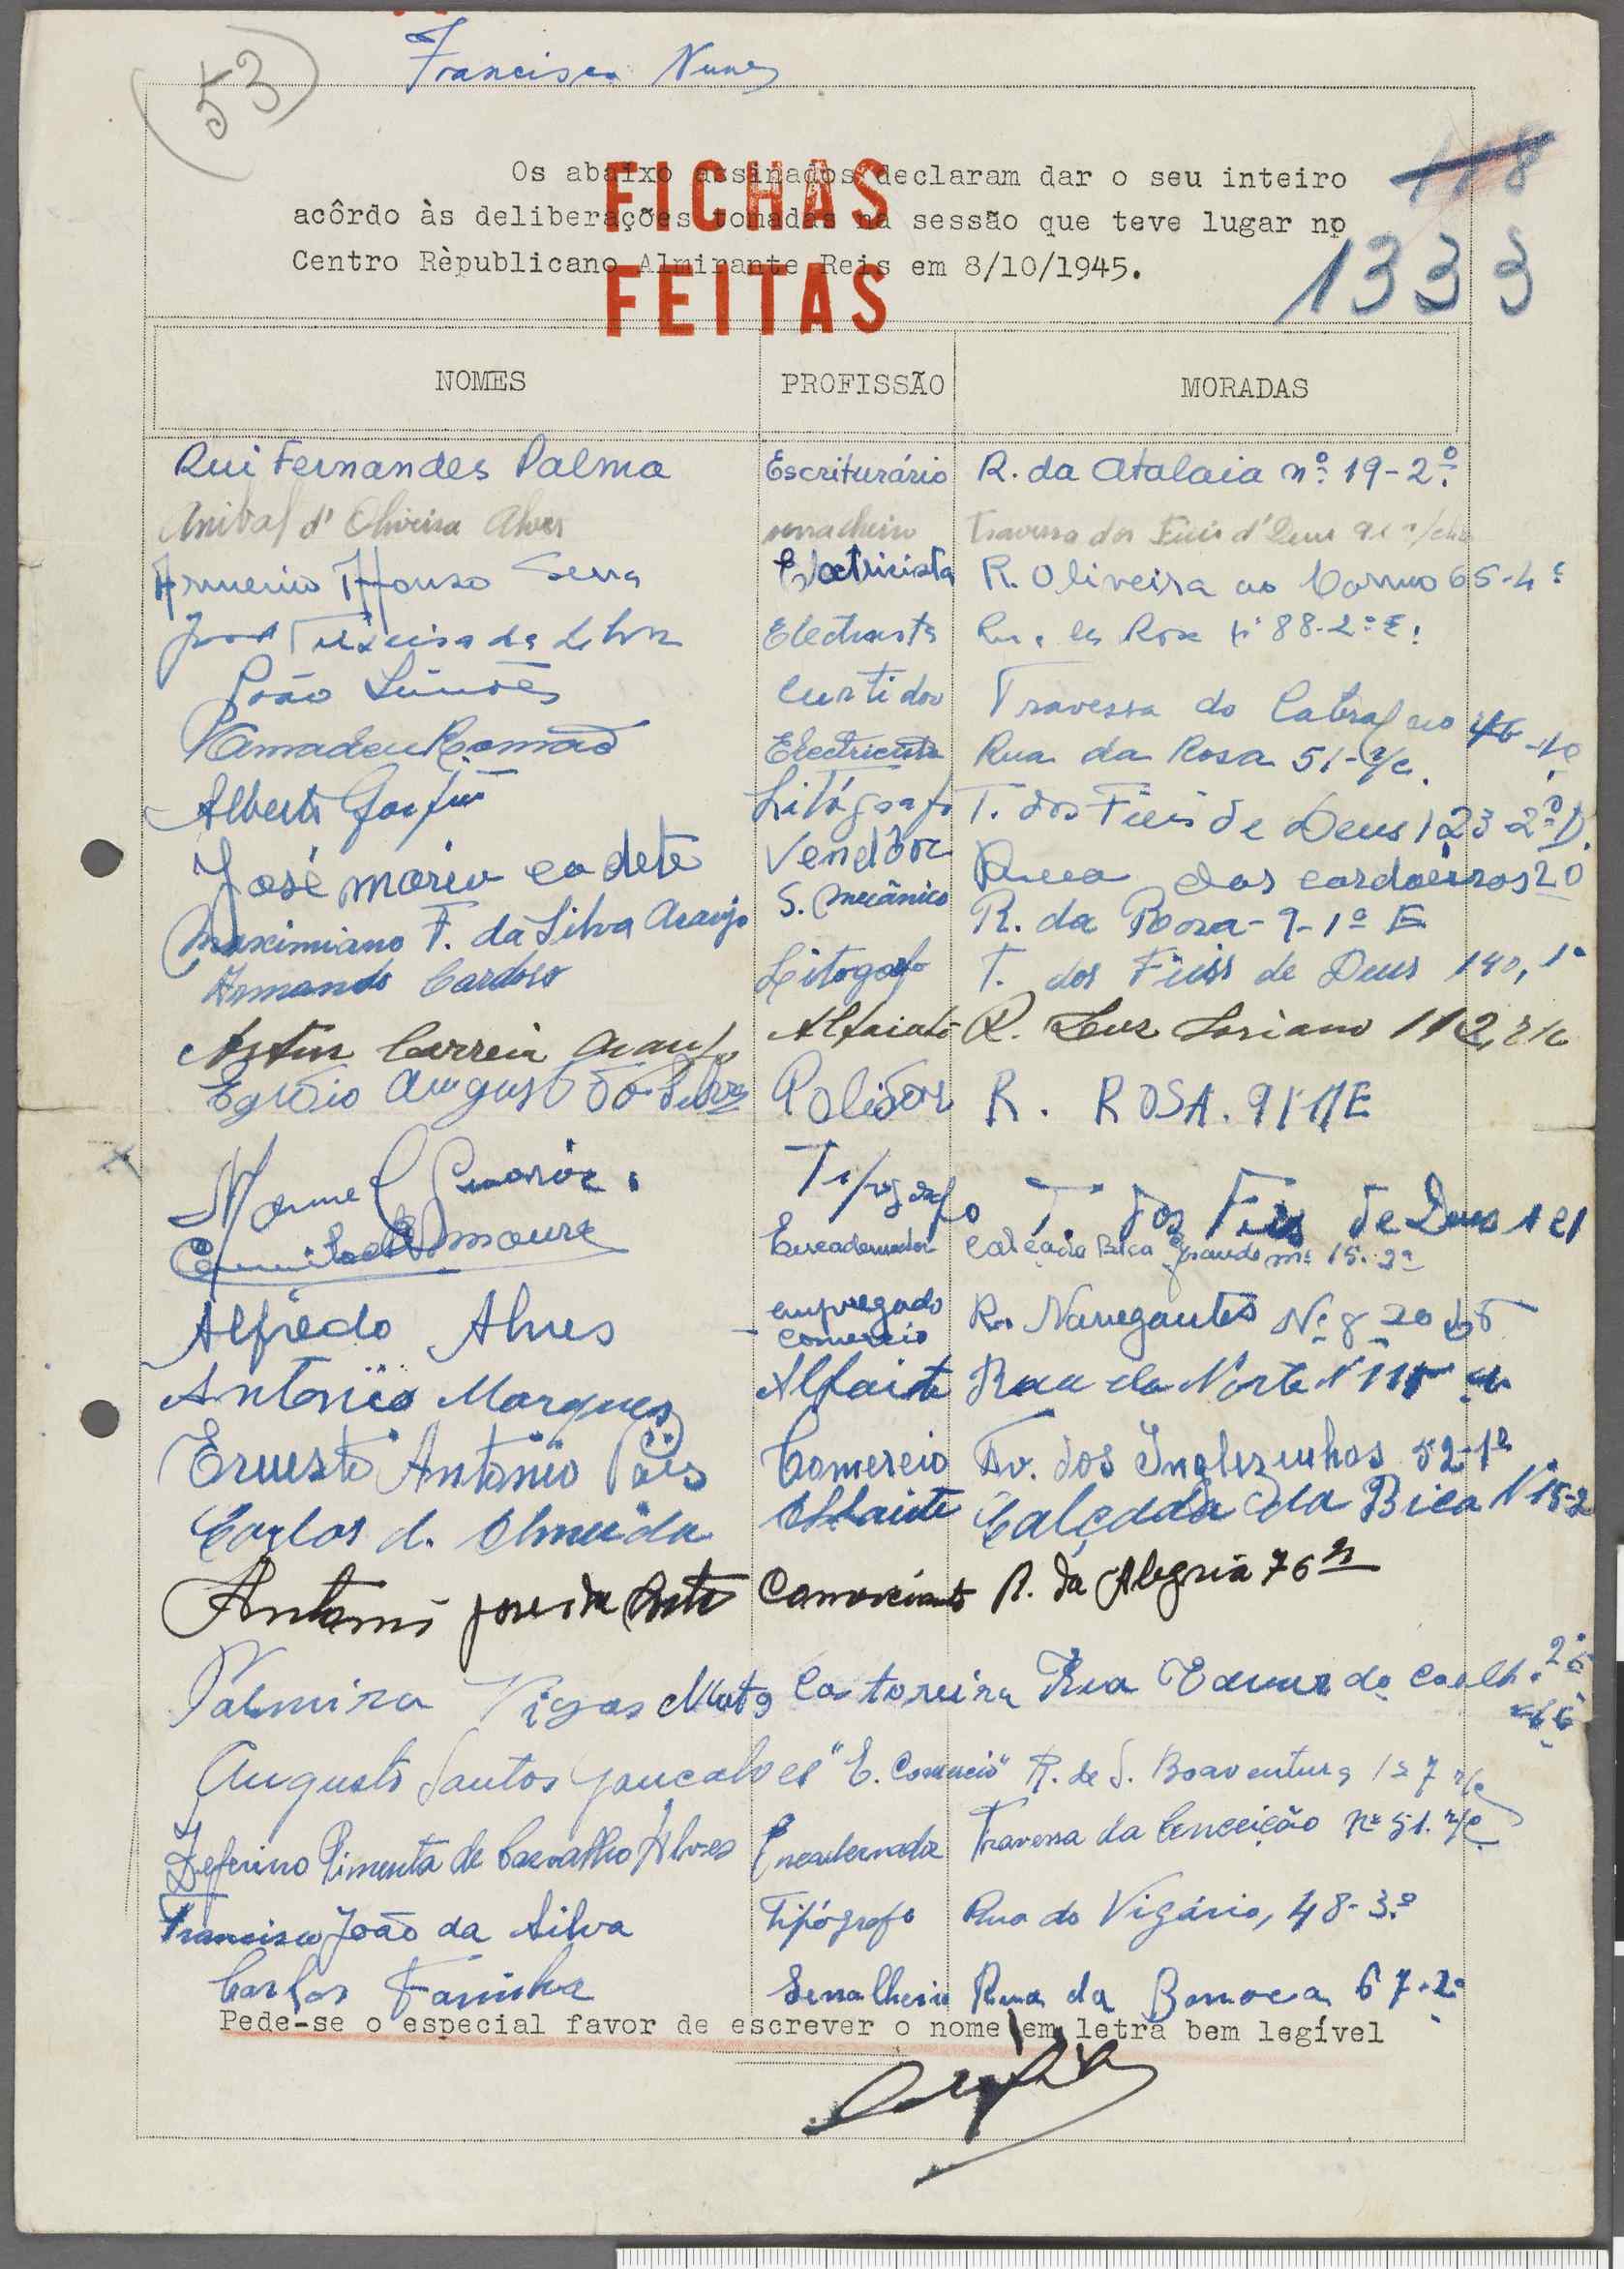 (53)
Francisco Nunes
118
1333
FICHAS
FEITAS
Os abaixo assinados declaram dar o seu inteiro
acôrdo às deliberações tomadas na sessão que teve lugar no
Centro Rèpublicano Almirante Reis em 8/10/1945.
NOMES PROFISSÃO MORADAS
Rui Fernandes Palma Escriturário R. da Atalaia nº 19-2º
Anibal d' Oliveira Alves serralheiro Travessa dos Fieis d' Deus
Armenio Affonso Serra Electricista R. Oliveira ao Carmo 65-4º
Teixeira da Silva Electrista Rua da Rosa Nº 88-2º E.
João Simões Curtidor Travessa do Cabral
Amadeu Romão Electricista Rua da Rosa 51-r/c.
Alberto Litógrafo T. dos Fieis de Deus 123-2º D.
José Maria cadete Vendôr Rua dos cordoeiros 20
Maximiano F. da Silva Araujo S. Mecânico R. da Rosa-9-1º E
Armando Cardoso Litografo T. dos Fieis de Deus 140, 1º
Artur Correia Araujo Alfaiate R. Luz Soriano 112, r/c
Augusto Polidor R. ROSA. 9/1/E
Manuel Tipografo T. dos Fieis de Deus 121
Camilo Moura Encadernador Calçada Bica Grande nº 15-2º
Alfredo Alves empregado comercio R. Navegantes Nº 8
Antonio Marques Alfaiate Rua do Norte
Ernesto Antonio Pais Comercio Tv. dos Inglezinhos 52-1º
Carlos d. Almeida Alfaiate Calçada da Bica Nº 15-2
Antonio Jose da Comerciante R. da Alegria 76
Palmira Viegas Mata Costoreira Rua Eduardo Coelho
Augusto Santos Gonçalves "E. Comercio" R. de S. Boaventura 127 r/c
Zeferino Pimenta de Carvalho Alves Encadernador Travessa da Conceição nº 51. r/c
Francisco João da Silva Tipógrafo Rua do Vigário, 48-3.º
Carlos Farinha Serralheiro Rua da Barroca 67-2º
Pede-se o especial favor de escrever o nome em letra bem legível